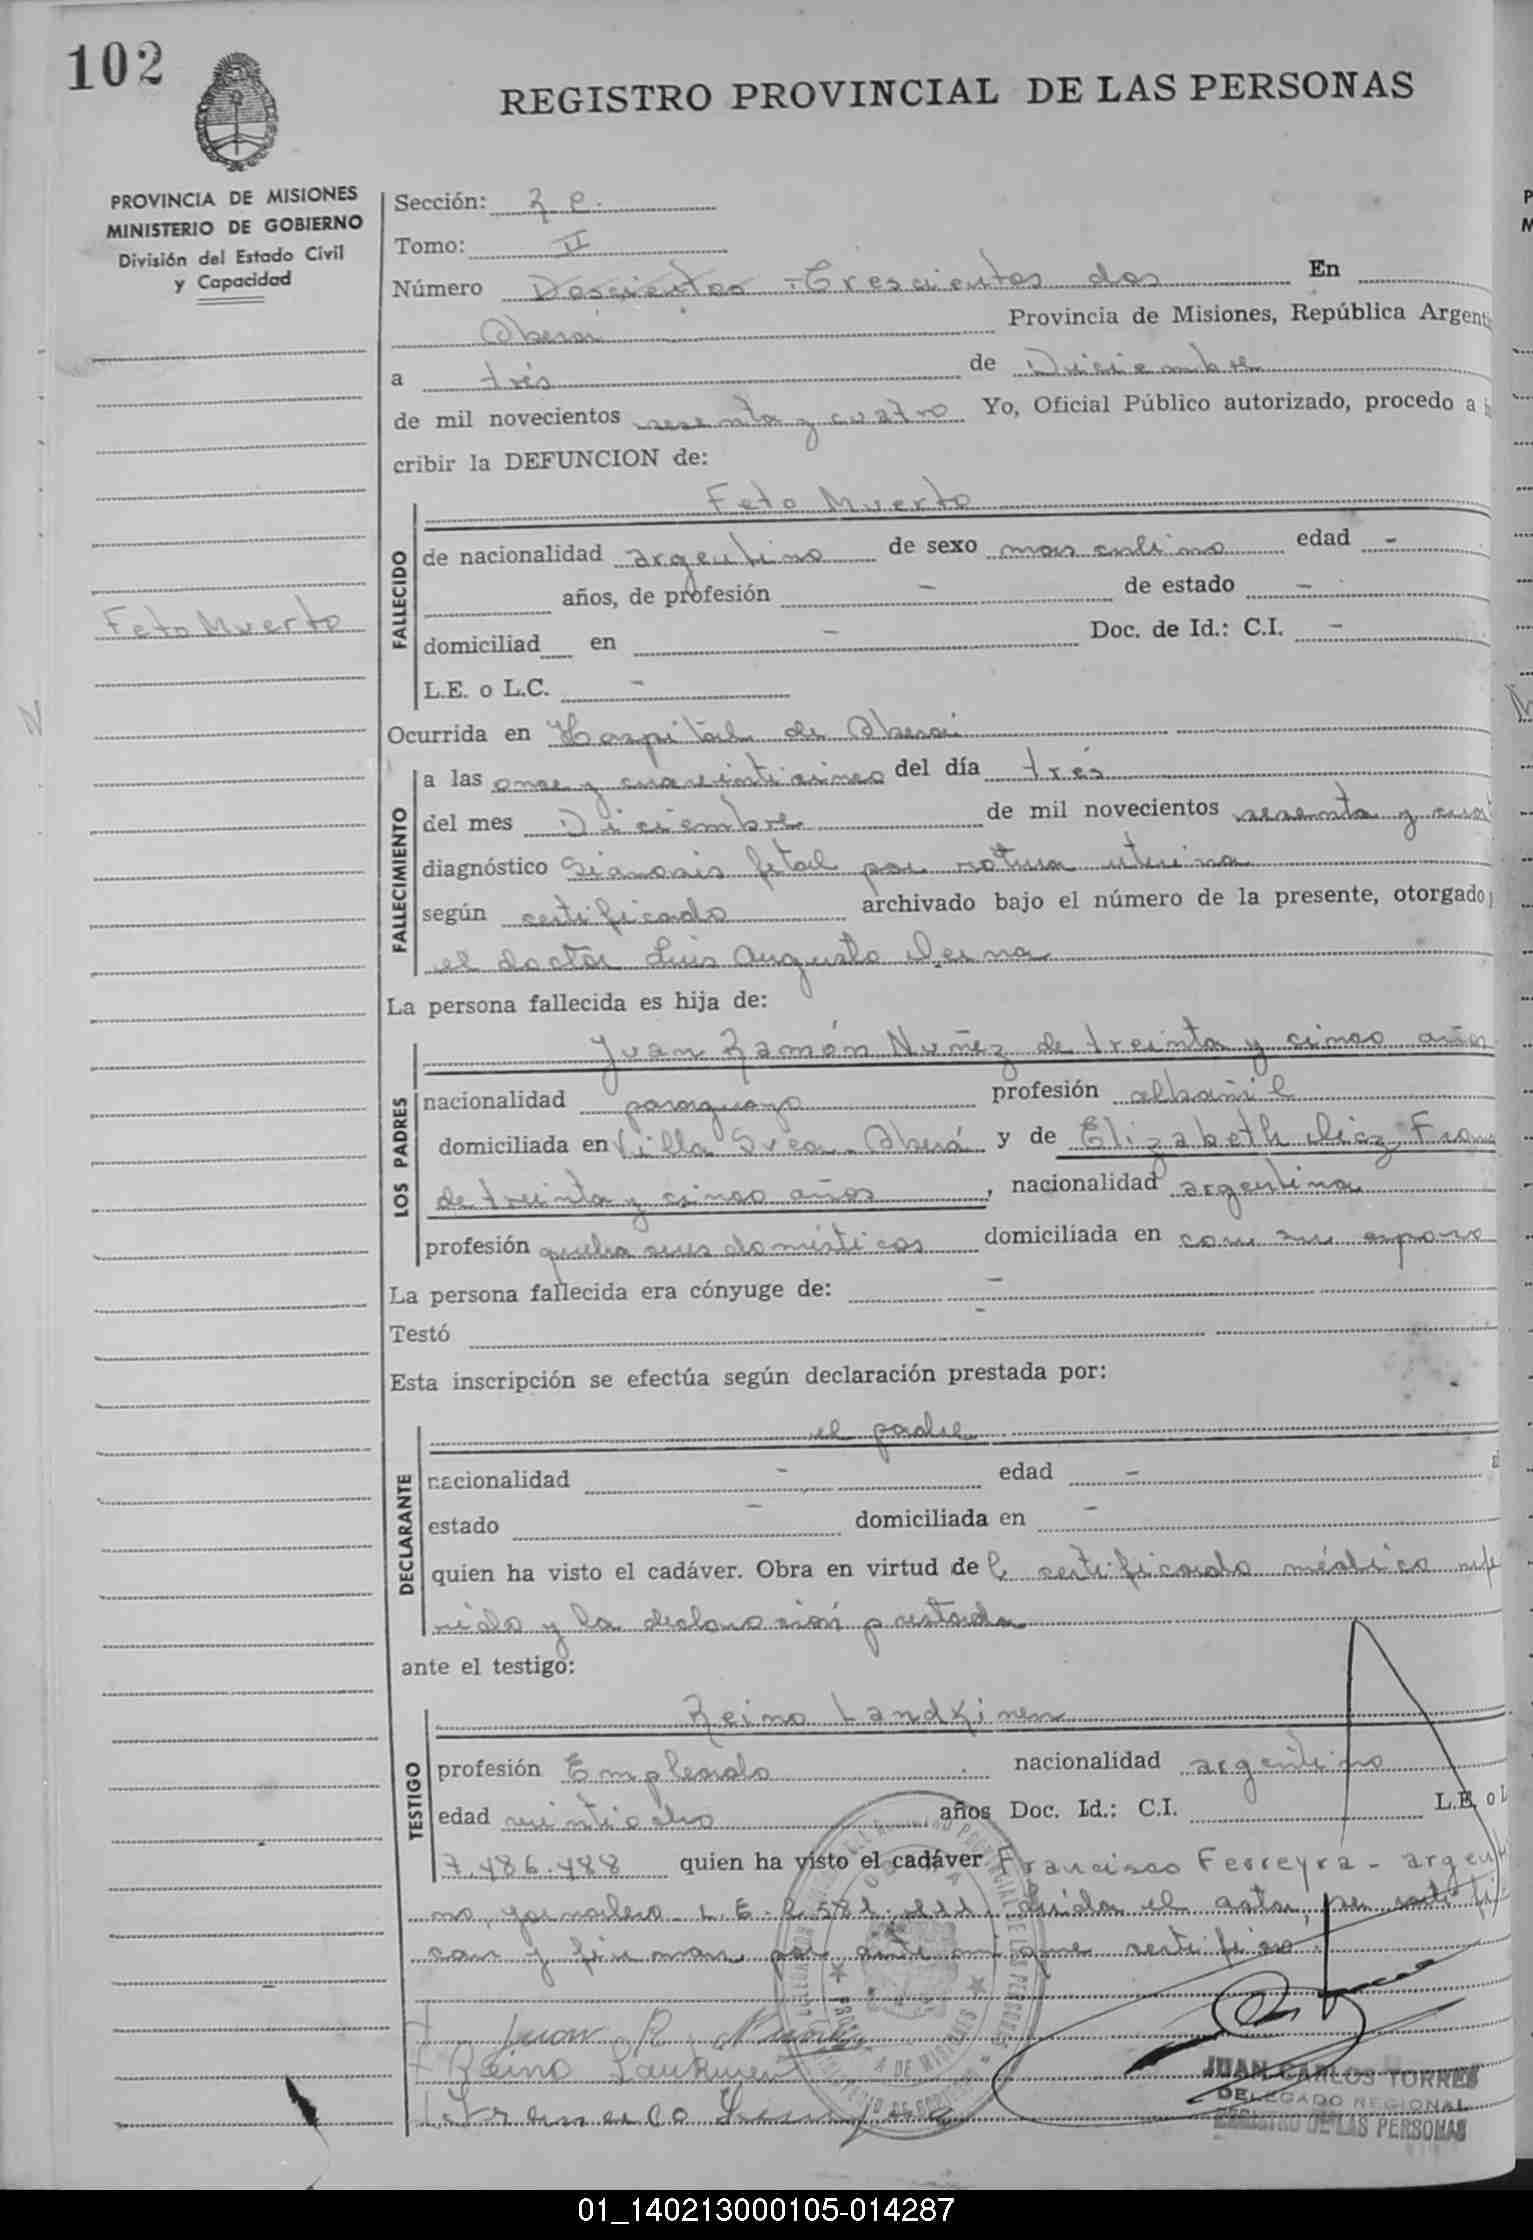 102
REGISTRO PROVINCIAL DE LAS PERSONAS
PROVINCIA DE MISIONES
MINISTERIO DE GOBIERNO
División del Estado Civil
y Capacidad
Sección:
Tomo: II
Número Doscientos - Trescientos dos En
Oberá Provincia de Misiones, República Argent
a trés de Diciembre
de mil novecientos sesenta y cuatro Yo, Oficial Público autorizado, procedo a
cribir la DEFUNCION de:
Feto Muerto
FALLECIDO
de nacionalidad argentino de sexo masculino edad -
años, de profesión - de estado -
Feto Muerto
domiciliad en - Doc. de Id.: C.I. -
L.E. o L.C. -
Ocurrida en Hospital de Oberá
FALLECIMIENTO
a las once y cuarenticinco del día trés
del mes Diciembre de mil novecientos sesenta y cuat
diagnóstico Sianosis fetal por rotura uterina
según certificado archivado bajo el número de la presente, otorgado
el doctor Luis Augusto
La persona fallecida es hija de:
LOS PADRES
Juan Ramón Nuñez de treinta y cinco años
nacionalidad paraguayo profesión albañil
domiciliada en Villa Svea - Oberá y de Elizabeth
de treinta y cinco años, nacionalidad argentina
profesión quehaceres domésticos domiciliada en con su esposo
La persona fallecida era cónyuge de: -
Testó -
Esta inscripción se efectúa según declaración prestada por:
DECLARANTE
el padre
nacionalidad - edad -
estado - domiciliada en -
quien ha visto el cadáver. Obra en virtud de l certificado médico refe
rido y la declaración prestada
ante el testigo:
TESTIGO
Reino Landkinen
profesión Empleado nacionalidad argentino
edad veintiocho años Doc. Id.: C.I. L.E. o L
7.486.488 quien ha visto el cadáver Francisco Ferreyra - argenti
no, jornalero L.E. Leída el acta, se ratifi
can y firman por ante mi que certifico.
Juan R. Nuñez
Reino
Francisco
JUAN CARLOS TORRES
DELEGADO REGIONAL
REGISTRO DE LAS PERSONAS
01_140213000105-014287